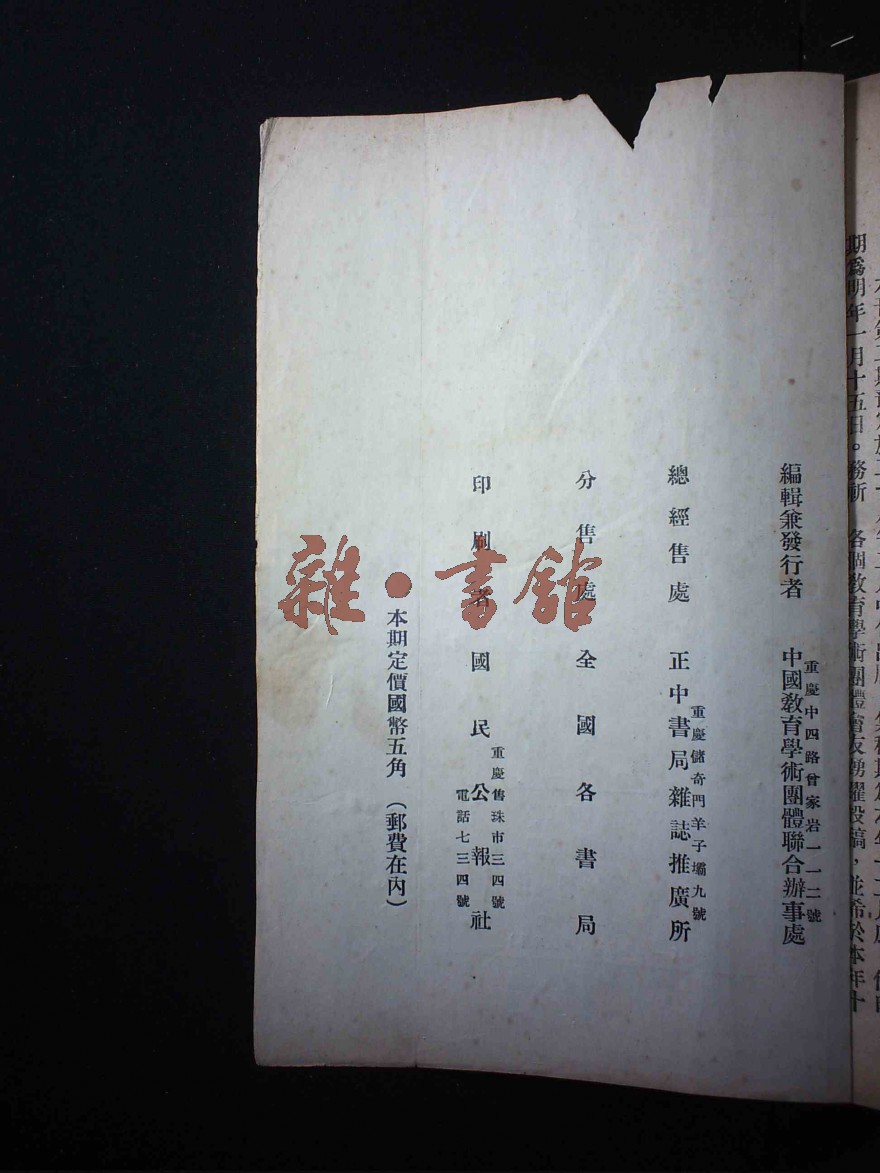 期爲明年一月十五日。務斬　各個教育學術團體會友踴躍投稿，並希於本年十
編輯兼發行者　中國教育學術團體聯合辦事處
重慶中四路曾家岩一一二號
總經售處　正中書局雜誌推廣所
重慶儲奇門羊子壩九號
分售處　全國各書局
印刷者　國民公報社
重慶售珠市三四號
電話七三四號
本期定價國幣五角　（郵費在內）
雜·書館